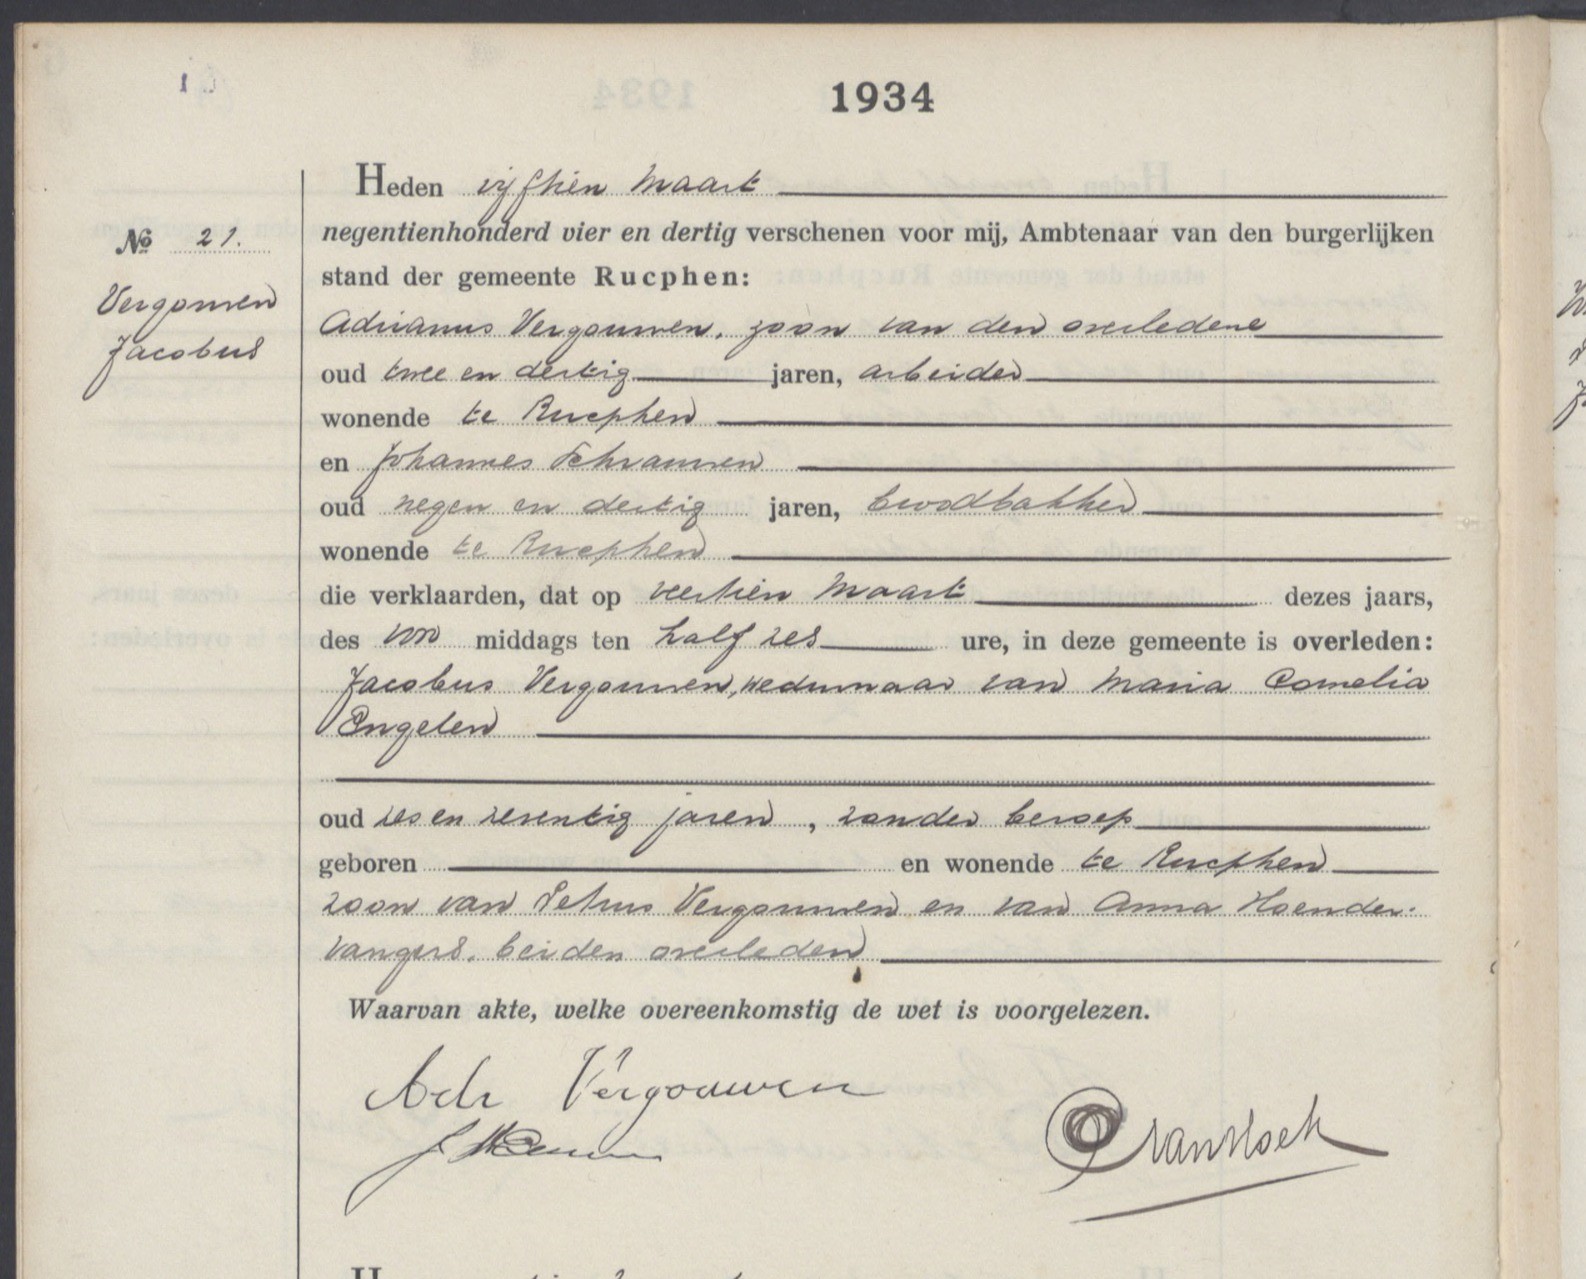 1934
Heden vijftien Maart
negentienhonderd vier en dertig verschenen voor mij, Ambtenaar van den burgerlijken
No 21.
stand der gemeente Rucphen:
Vergouwen
Jacobus
Adrianus Vergouwen, zoon van den overledene
oud twee en dertig jaren, arbeider
wonende te Rucphen
en Johannes Schrauwen
oud negen en dertig jaren, broodbakker
wonende te Rucphen
die verklaarden, dat op veertien Maart dezes jaars,
des voor middags ten half zes ure, in deze gemeente is overleden:
Jacobus Vergouwen, weduwnaar van Maria Cornelia
Engelen
oud zes en zeventig jaren, zonder beroep
geboren en wonende te Rucphen
zoon van Petrus Vergouwen en van Anna Hoender-
vangers, beiden overleden
Waarvan akte, welke overeenkomstig de wet is voorgelezen.
Adr Vergouwen